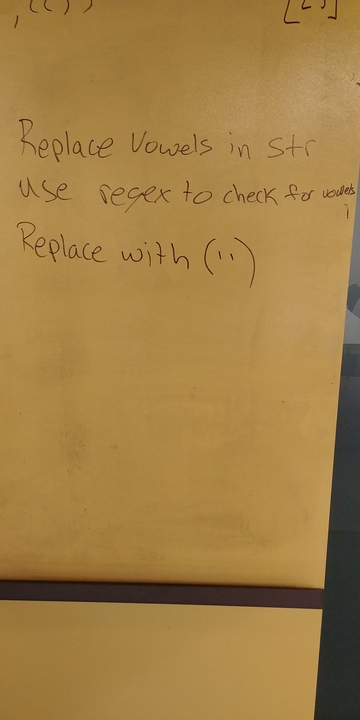 , ( ( ) )
[ [ ] ]
Replace Vowels in str
Use regex to check for vowels
i
Replace with ('')